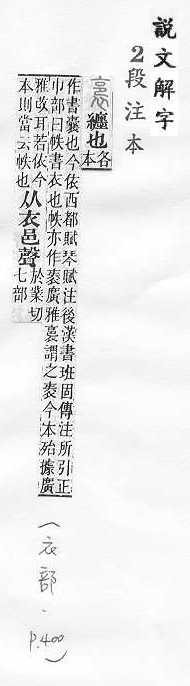 說文解字
2段注本
裛纏也各本
作書囊也今依西都賦琴賦注後漢書班固傳注所引正
巾部曰帙書衣也帙亦作袠廣雅裛謂之袠今本殆據廣
雅改耳若依今
本則當云帙也从衣邑聲於業切
七部
(衣部.
p.400)